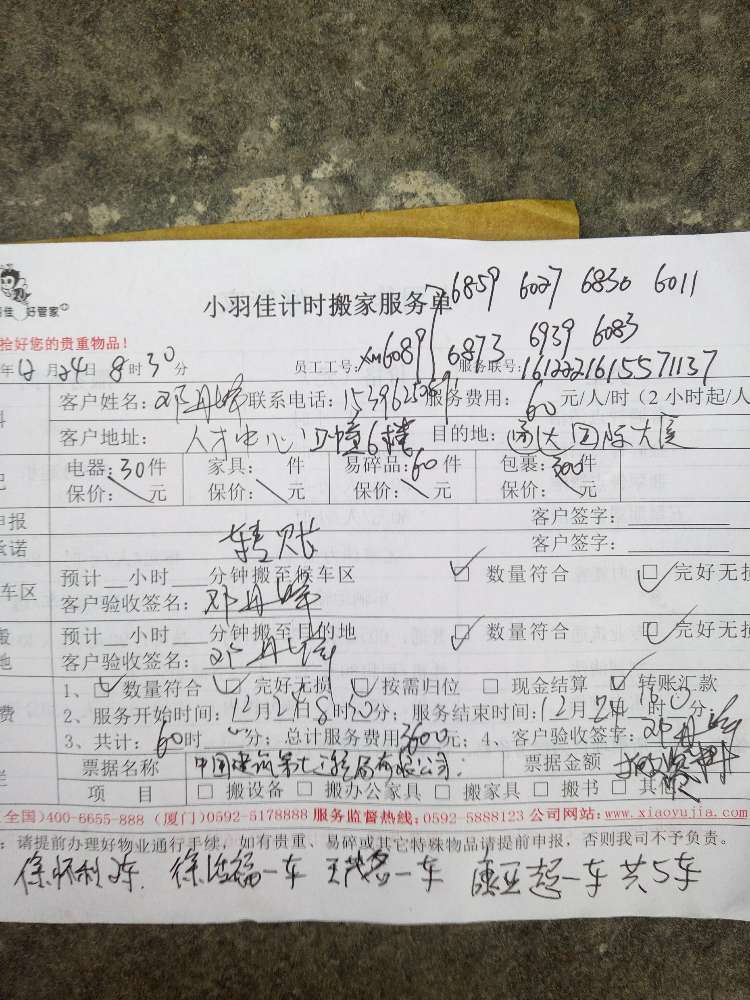 好管家
小羽佳计时搬家服务单
6859 6027 6830 6011
拾好您的贵重物品！
年12月24日8时30分 员工工号：XM6089 6873 6939 6083
服务联号：1612221615571137
客户姓名：邓丹峰 联系电话： 服务费用：60元/人/时（2小时起/人
客户地址：人才中心 6楼 目的地：通达国际大厦
电器：30件 家具： 件 易碎品：60件 包裹：300件
保价： 元 保价： 元 保价： 元 保价： 元
申报 客户签字：
承诺 转账 客户签字：
车区 预计 小时 分钟搬至候车区 数量符合 完好无损
客户验收签名：邓丹峰
预计 小时 分钟搬至目的地 数量符合 完好无损
地 客户验收签名：邓丹峰
1、 数量符合 完好无损 按需归位 现金结算 转账汇款
费 2、服务开始时间：12月2日8时30分；服务结束时间：12月24日 时 分；
3、共计：60时 分；总计服务费用3600元；4、客户验收签字：邓丹峰
票据名称 中国建筑第七工程局有限公司： 票据金额
项 目 搬设备 搬办公家具 搬家具 搬书 其他
全国）400-6655-888（厦门）0592-5178888 服务监督热线：0592-5888123 公司网站：www.xiaoyujia.com
：请提前办理好物业通行手续，如有贵重、易碎或其它特殊物品请提前申报，否则我司不予负责。
徐怀利2车. 徐 福一车 王 一车 康亚超一车 共5车